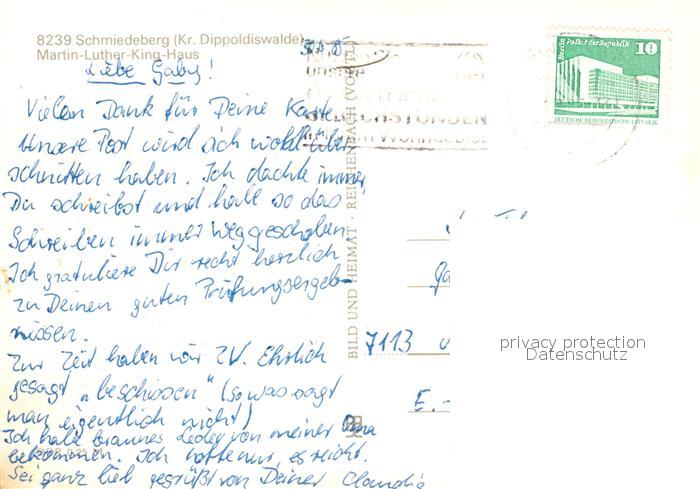 8239 Schmiedeberg (Kr. Dippoldiswalde)
Martin-Luther-King-Haus
Liebe Gaby!
Vielen Dank für Deine Karte.
Unsere Post wird sich wohl über-
schnitten haben. Ich dachte immer,
Du schreibst und habe so das
Schreiben immer weggeschoben.
Ich gratuliere Dir recht herzlich
zu Deinen guten Prüfungsergeb-
nissen.
Zur Zeit haben wir ZV. Ehrlich
gesagt „beschissen" (sowas sagt
man eigentlich nicht)
Ich habe braunes Leder von meiner Oma
bekommen. Ich hoffe nur, es reicht.
Sei ganz lieb gegrüßt von Deiner Claudia
BILD UND HEIMAT · REICHENBACH (VOGTL)
Berlin Palast der Republik
10
DEUTSCHE DEMOKRATISCHE REPUBLIK
7113
E.-
privacy protection
Datenschutz